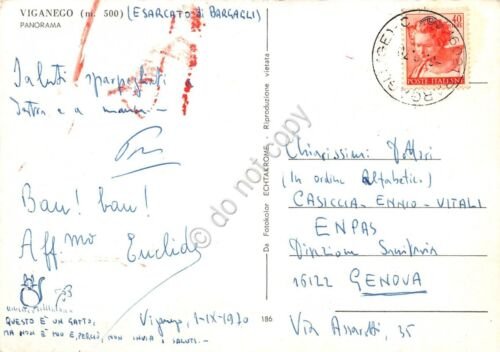 VIGANEGO (m. 500) (ESARCATO di BARGAGLI)
PANORAMA
Saluti sparpagliati
BARGAGLI (GE)
40
POSTE ITALIANE
Bau! bau!
Aff.mo Euclide
QUESTO È UN GATTO,
MA NON È MIO E, PERCIÒ, NON INVIA I SALUTI.-
Viganego, 1-IX-1970
186
Da Fotokolor EKTAKROME - Riproduzione vietata
do not copy
Chiarissimi Dottori
(In ordine alfabetico)
CASICCIA-ENNIO-VITALI
ENPAS
Direzione Sanitaria
16122 GENOVA
Via Assarotti, 35